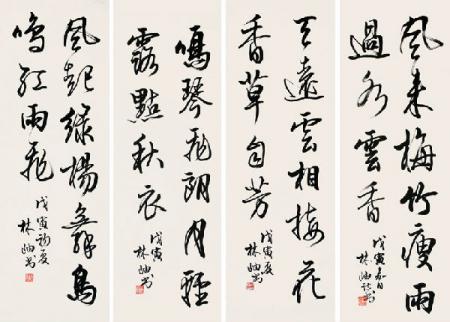 風来梅竹瘦雨
過水雲香
戊寅春日
林岫
天遠雲相接花
香草自芳
戊寅夏
林岫书
鳴琴飛朗月輕
露點秋衣
戊寅
林岫书
風起綠楊舞鳥
鳴紅雨飛
戊寅初夏
林岫书